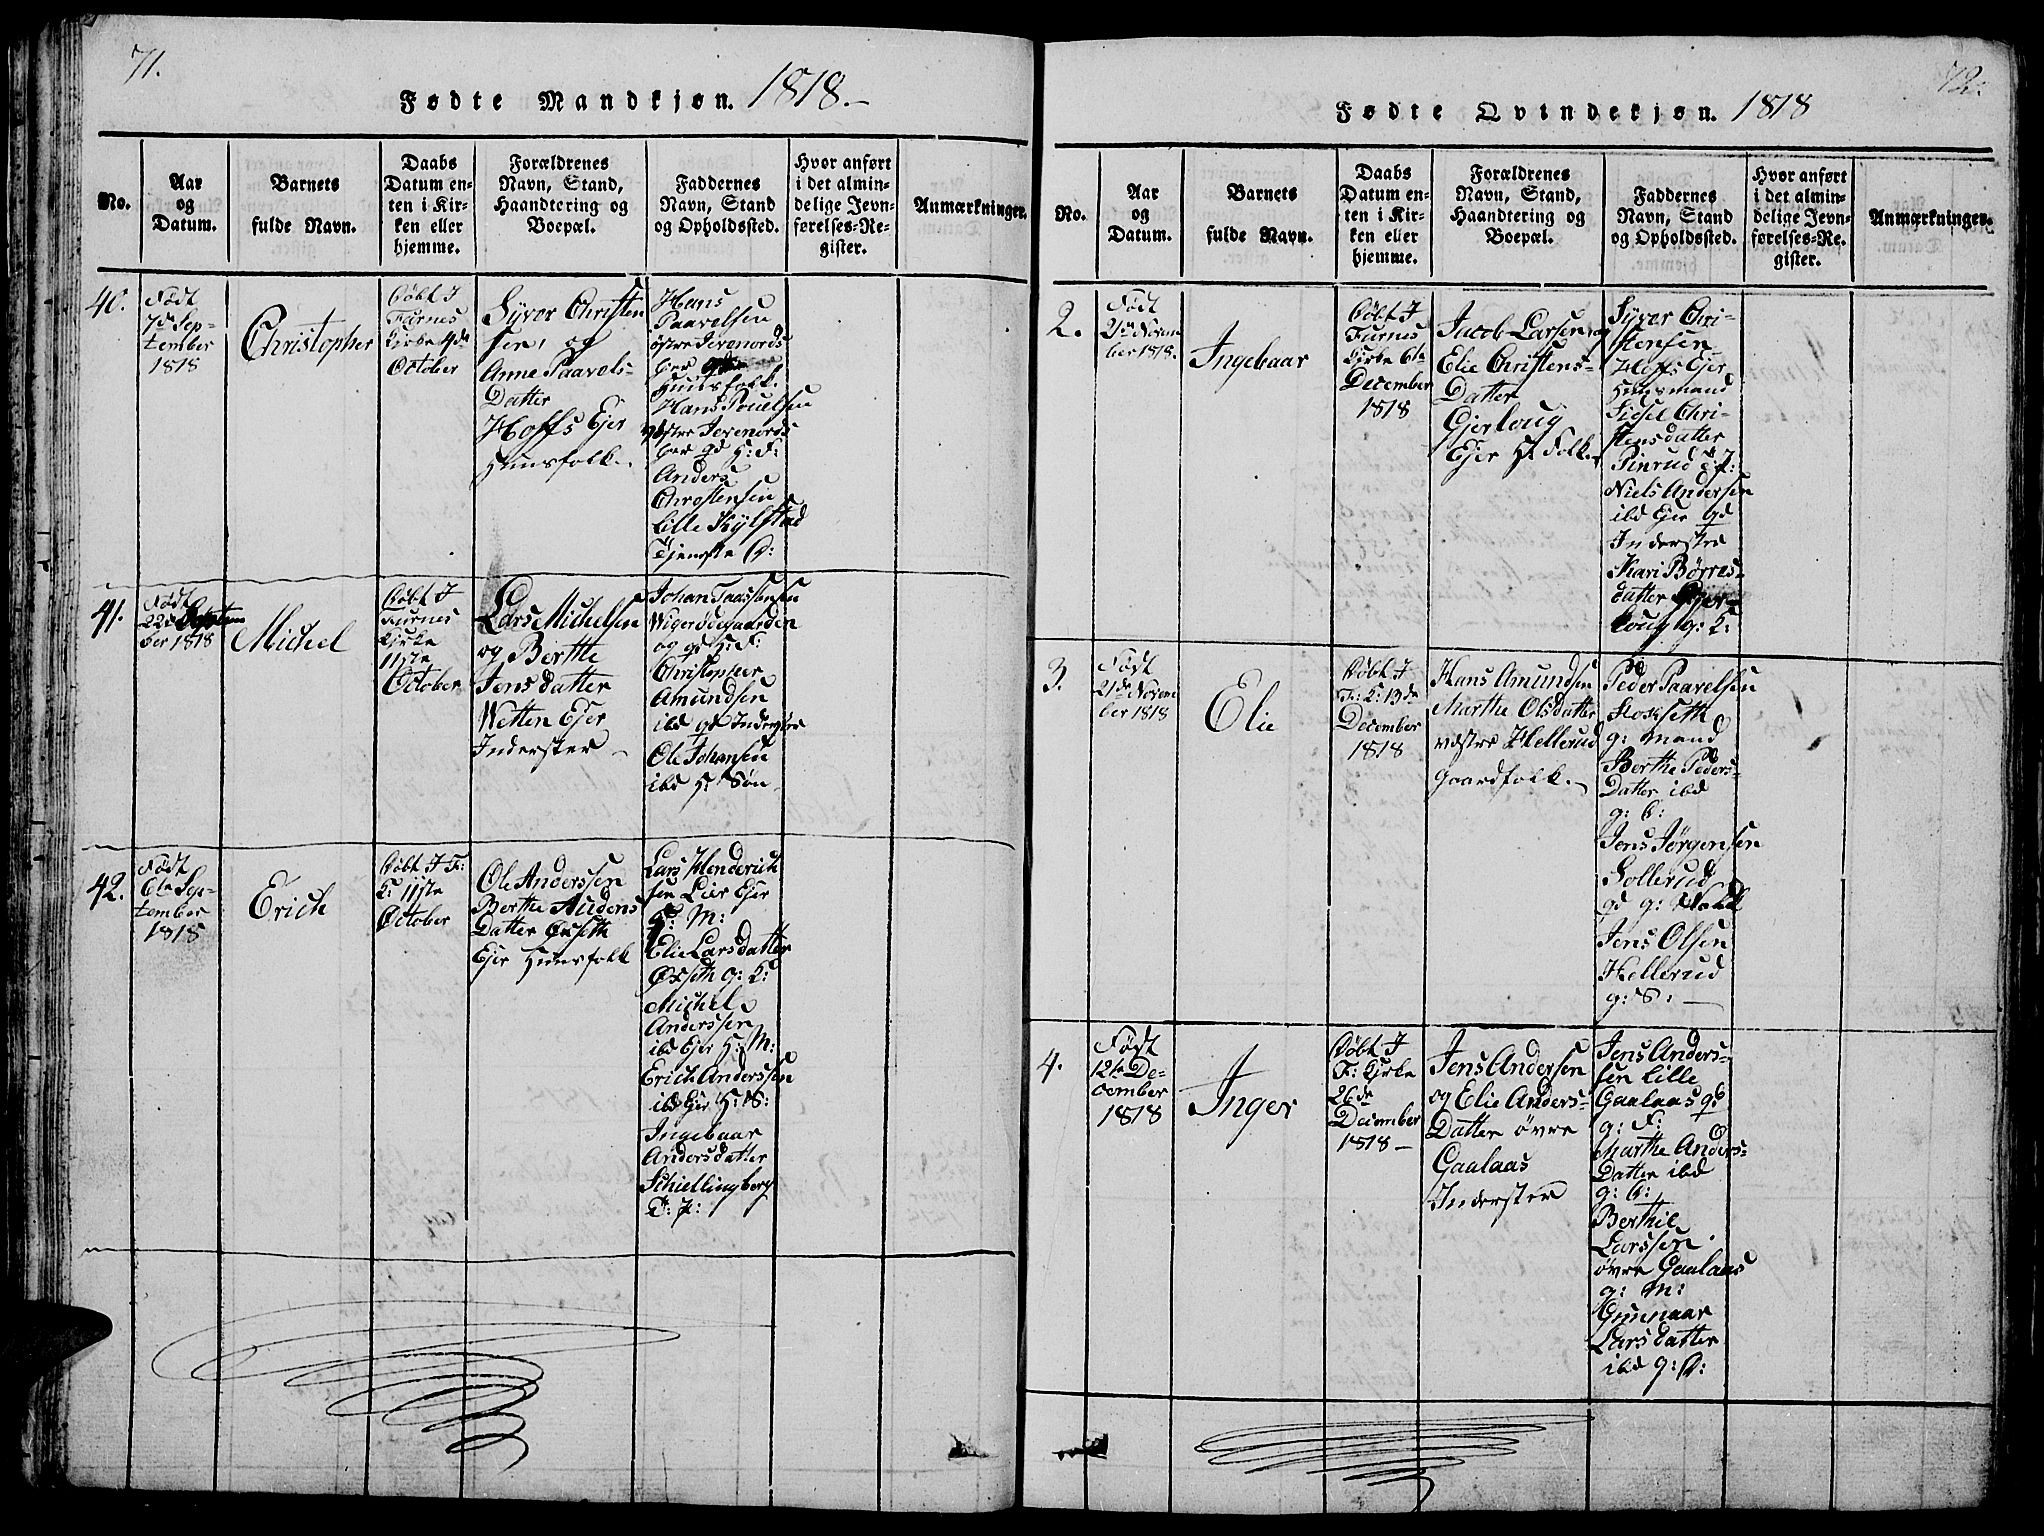 71.
Fødte Mandkjøn. 1818.-
No.
Aar
og
Datum.
Barnets
fulde Navn.
Daabs
Datum en-
ten i Kir-
ken eller
hjemme.
Forældrenes
Navn, Stand,
Haandtering og
Boepæl.
Faddernes
Navn, Stand
og Opholdssted.
Hvor anført
i det almin-
delige Jevn-
førelses-Re-
gister.
Anmærkninger.
40.
Født
7de Sep-
tember
1818
Christopher
Døbt I
Furnes
Kirke 4de
October
Syver Christen
sen, og
Anne Paavels-
Datter
Hoffs Ejer
Huusfolk.
Hans
Paavelsen
østre
Huusfolk.
Hans Poulsen
gd H: F:
Anders
Christensen
Lille Kylstad
Tjeneste D:
41.
Født
22de
ber 1818
Michel
Døbt I
Furnes
Kirke
11ste
October
Lars Michelsen
og Berthe
Jens datter
Wetten Ejer
Inderster
Johan
og gd H: F:
Christopher
Amundsen
ibd gd Inderster
Ole Johansen
ibd H: Søn
42.
Født
6te Sep-
tember
1818
Erich
Døbt I F:
K: 11ste
October
Ole Anderssen
Berthe Audens
Datter Øxseth
Ejer Huusfolk
Lars Henderich
sen Lier Ejer
H: M:
Elie Larsdatter
Øxseth g: K:
Michel
Anderssen
ibd Ejer H: M:
Erich Anderssen
ibd Ejer H: S:
Ingebaar
Andersdatter
Schiellingberg
T: P:
72.
Fødte Qvindekjøn. 1818
No.
Aar
og
Datum.
Barnets
fulde Navn.
Daabs
Datum en-
ten i Kir-
ken eller
hjemme.
Forældrenes
Navn, Stand,
Haandtering og
Boepæl.
Faddernes
Navn, Stand
og Opholdssted.
Hvor anført
i det almin-
delige Jevn-
førelses-Re-
gister.
Anmærkninger.
2.
Født
Novem
ber 1818.
Ingebaar
Døbt I
Furnes
Kirke 6te
December
1818
Jacob Larsen og
Elie Christens-
Datter
Gjerloug
Ejer H: Folk
Syver Chri-
stensen
Hoffs Ejer
Huusmand
Sidsel Chri-
stensdatter
Pinrud
Niels Andersen
ibd Ejer gd
Inderster
Kari Børres-
datter Gjer-
loug g: K:
3.
Født
21de Novem
ber 1818
Elie
Døbt I
F: K: 13de
December
1818
Hans Amundsen
Marthe Olsdatter
vestre Hellerud
Gaardfolk.
Peder Paavelsen
Stokseth
g: mand
Berthe Peders-
Datter ibd
g: K:
Jens Jørgensen
Sollerud
gd g:
Jens Olsen
Hellerud
g: S:
4.
Født
12te De-
cember
1818
Inger
Døbt I
F: Kirke
26de
December
1818
Jens Andersen
og Elie Anders-
Datter øvre
Gaalaas
Inderster
Jens Anders-
sen Lille
Gaalaas gd
g: F:
Marthe Anders-
Datter ibd
g: K:
Berthil
Larssen
øvre Gaalaas
g: M:
Gunnaar
Lars datter
ibd g: D: